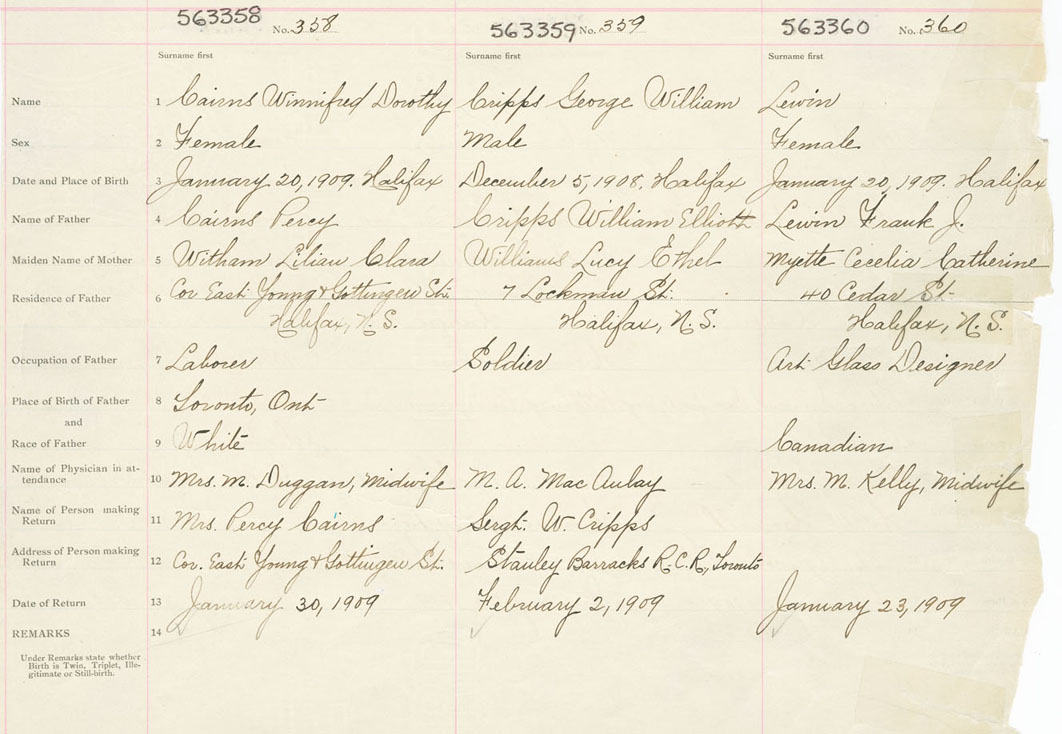 563358 No. 358 563359 No. 359 563360 No. 360
Surname first Surname first Surname first
Name 1 Cairns Winnifred Dorothy Cripps George William Lewin
Sex 2 Female Male Female
Date and Place of Birth 3 January 20, 1909. Halifax December 5, 1908. Halifax January 20, 1909. Halifax
Name of Father 4 Cairns Percy Cripps William Elliott Lewin Frank J.
Maiden Name of Mother 5 Witham Lilian Clara Williams Lucy Ethel Myette Cecelia Catherine
Residence of Father 6 Cor East Young & Gottingen Sts. 7 Lockman St. 40 Cedar St.
Halifax, N.S. Halifax, N.S. Halifax, N.S.
Occupation of Father 7 Laborer Soldier Art Glass Designer
Place of Birth of Father 8 Toronto, Ont
and
Race of Father 9 White Canadian
Name of Physician in at-
tendance 10 Mrs. M. Duggan, Midwife M. A. MacAulay Mrs. M. Kelly, Midwife
Name of Person making
Return 11 Mrs. Percy Cairns Sergt. W. Cripps
Address of Person making
Return 12 Cor. East Young & Gottingen St. Stanley Barracks R.C.R., Toronto
Date of Return 13 January 30, 1909 February 2, 1909 January 23, 1909
REMARKS 14
Under Remarks state whether
Birth is Twin, Triplet, Ille-
gitimate or Still-birth.